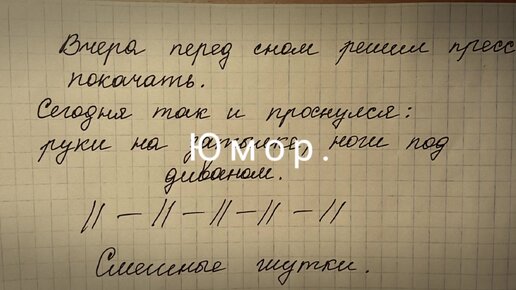 Вчера перед сном решил пресс
покачать.
Сегодня так и проснулся:
руки на затылке, ноги под
диваном.
Юмор.
// — // — // — // — //
Смешные шутки.